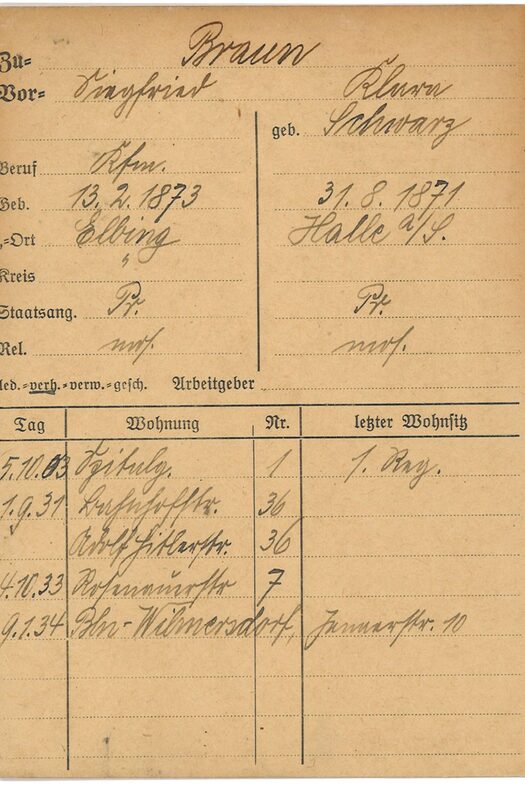 Zu= Braun
Vor= Siegfried Klara
geb. Schwarz
Beruf Kfm.
Geb. 13. 2. 1873 31. 8. 1871
.=Ort Elbing Halle a/S.
Kreis "
Staatsang. Pr. Pr.
Rel. mos. mos.
led.=verh.=verw.=gesch. Arbeitgeber
Tag Wohnung Nr. letzter Wohnsitz
5.10.03 Spitalg. 1 1. Reg.
1.9.31 Bahnhofstr. 36
Adolf Hitlerstr. 36
4.10.33 Rosenauerstr 7
9.1.34 Bln-Wilmersdorf, Jennerstr. 10